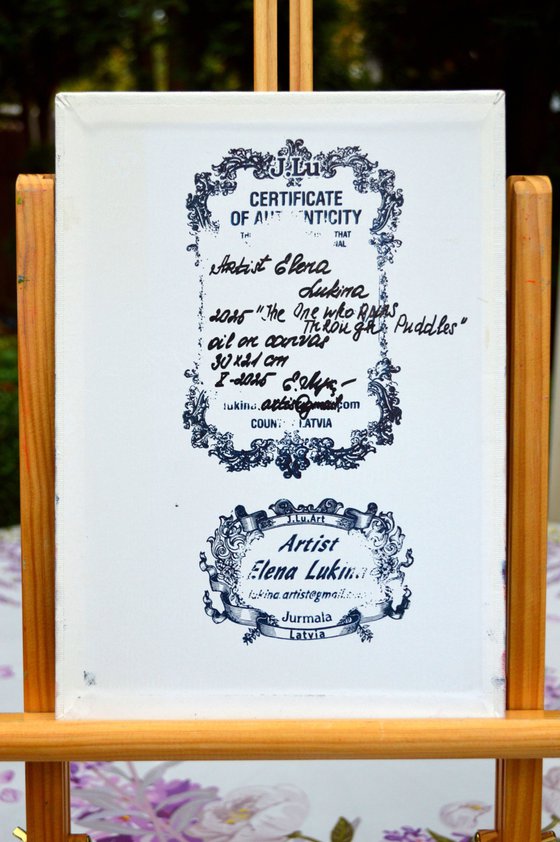 J.Lu
CERTIFICATE
OF AUTHENTICITY
THAT
Artist Elena
Lukina
2025 "The One who RUNS
Through Puddles"
oil on canvas
30x21 cm
I-2025
lukina.artist@gmail.com
COUNTRY LATVIA
J.Lu.Art
Artist
Elena Lukina
lukina.artist@gmail.com
Jurmala
Latvia